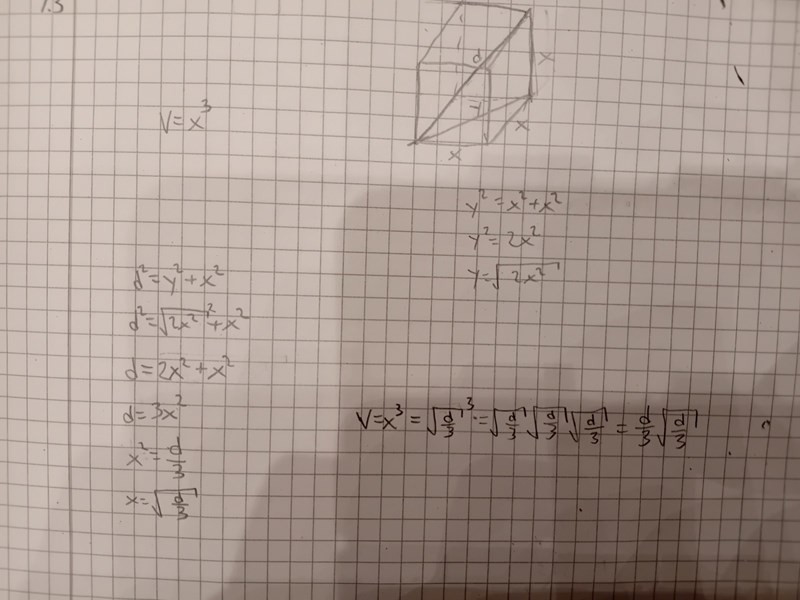 1.3
d
x
y
x
x
V = x³
y² = x² + x²
y² = 2x²
y = √2x²
d² = y² + x²
d² = √2x²² + x²
d = 2x² + x²
d = 3x²
x² = d/3
x = √d/3
V = x³ = √d/3³ = √d/3 √d/3 √d/3 = d/3 √d/3